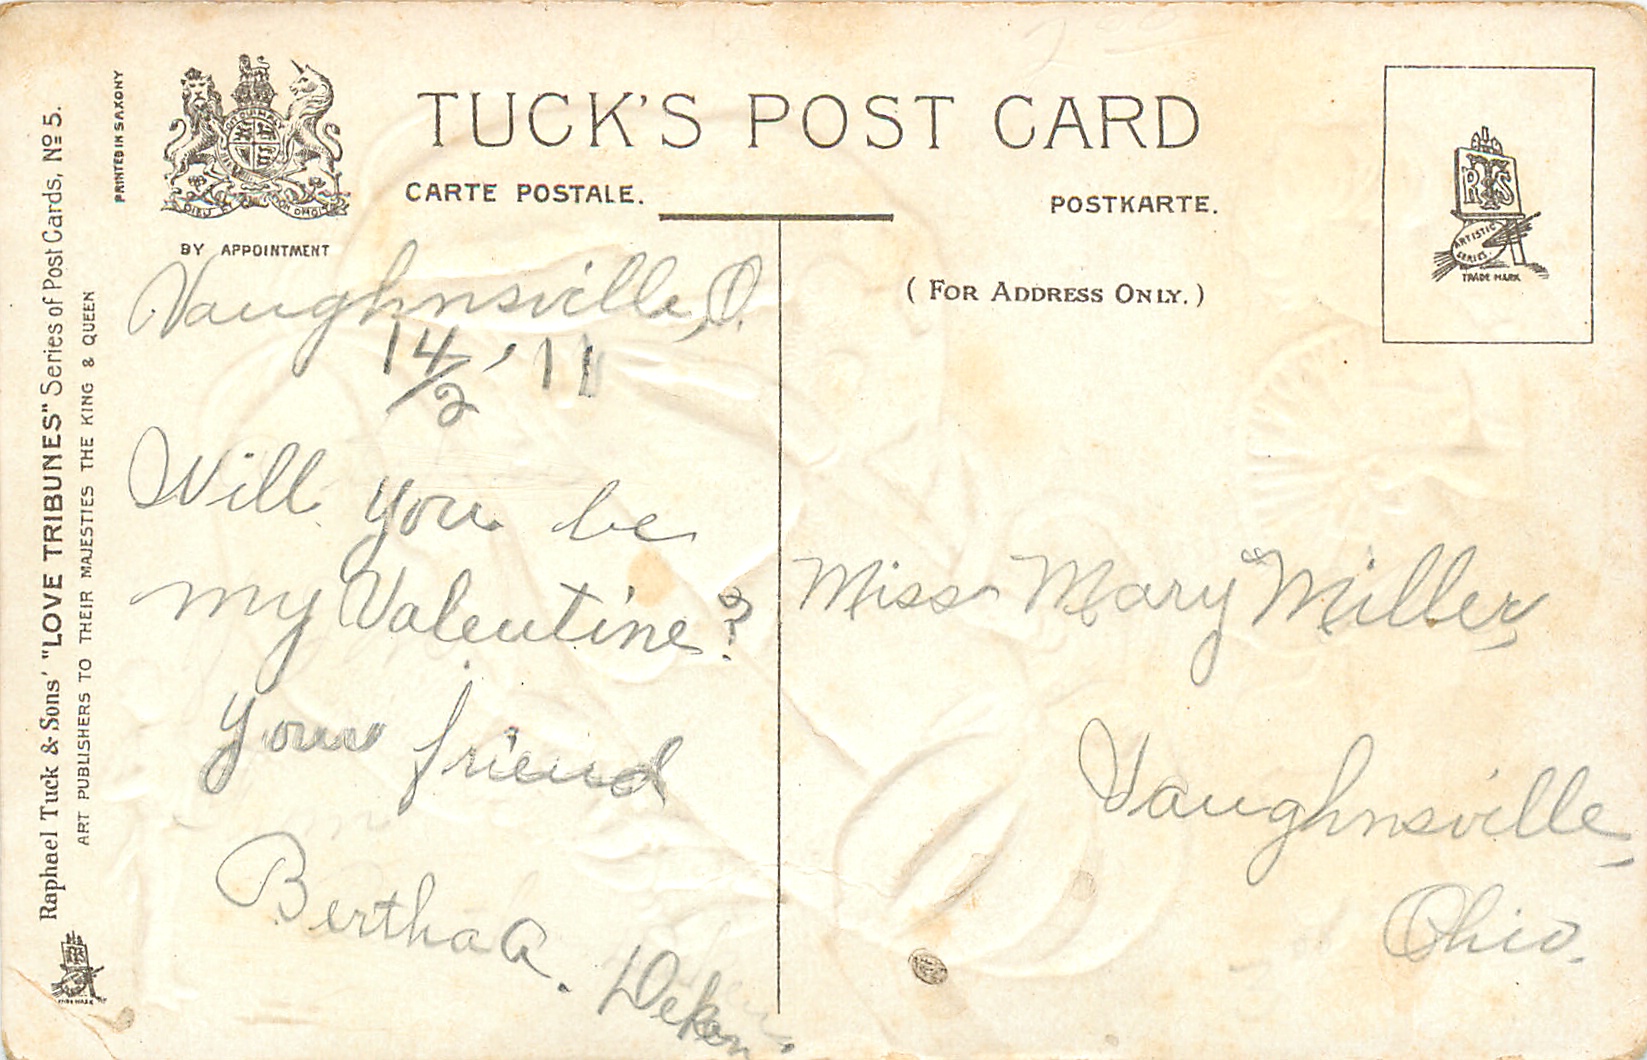 TUCK'S POST CARD
CARTE POSTALE.
POSTKARTE.
BY APPOINTMENT
DIEU ET MON DROIT
(FOR ADDRESS ONLY.)
RTS
ARTISTIC
SERIES
TRADE MARK
PRINTED IN SAXONY
Raphael Tuck & Sons' "LOVE TRIBUNES" Series of Post Cards, No 5.
ART PUBLISHERS TO THEIR MAJESTIES THE KING & QUEEN
Vaughnsville, O.
14/2, '11
Will you be
my Valentine?
Your friend
Bertha A.
Miss Mary Miller,
Vaughnsville,
Ohio.